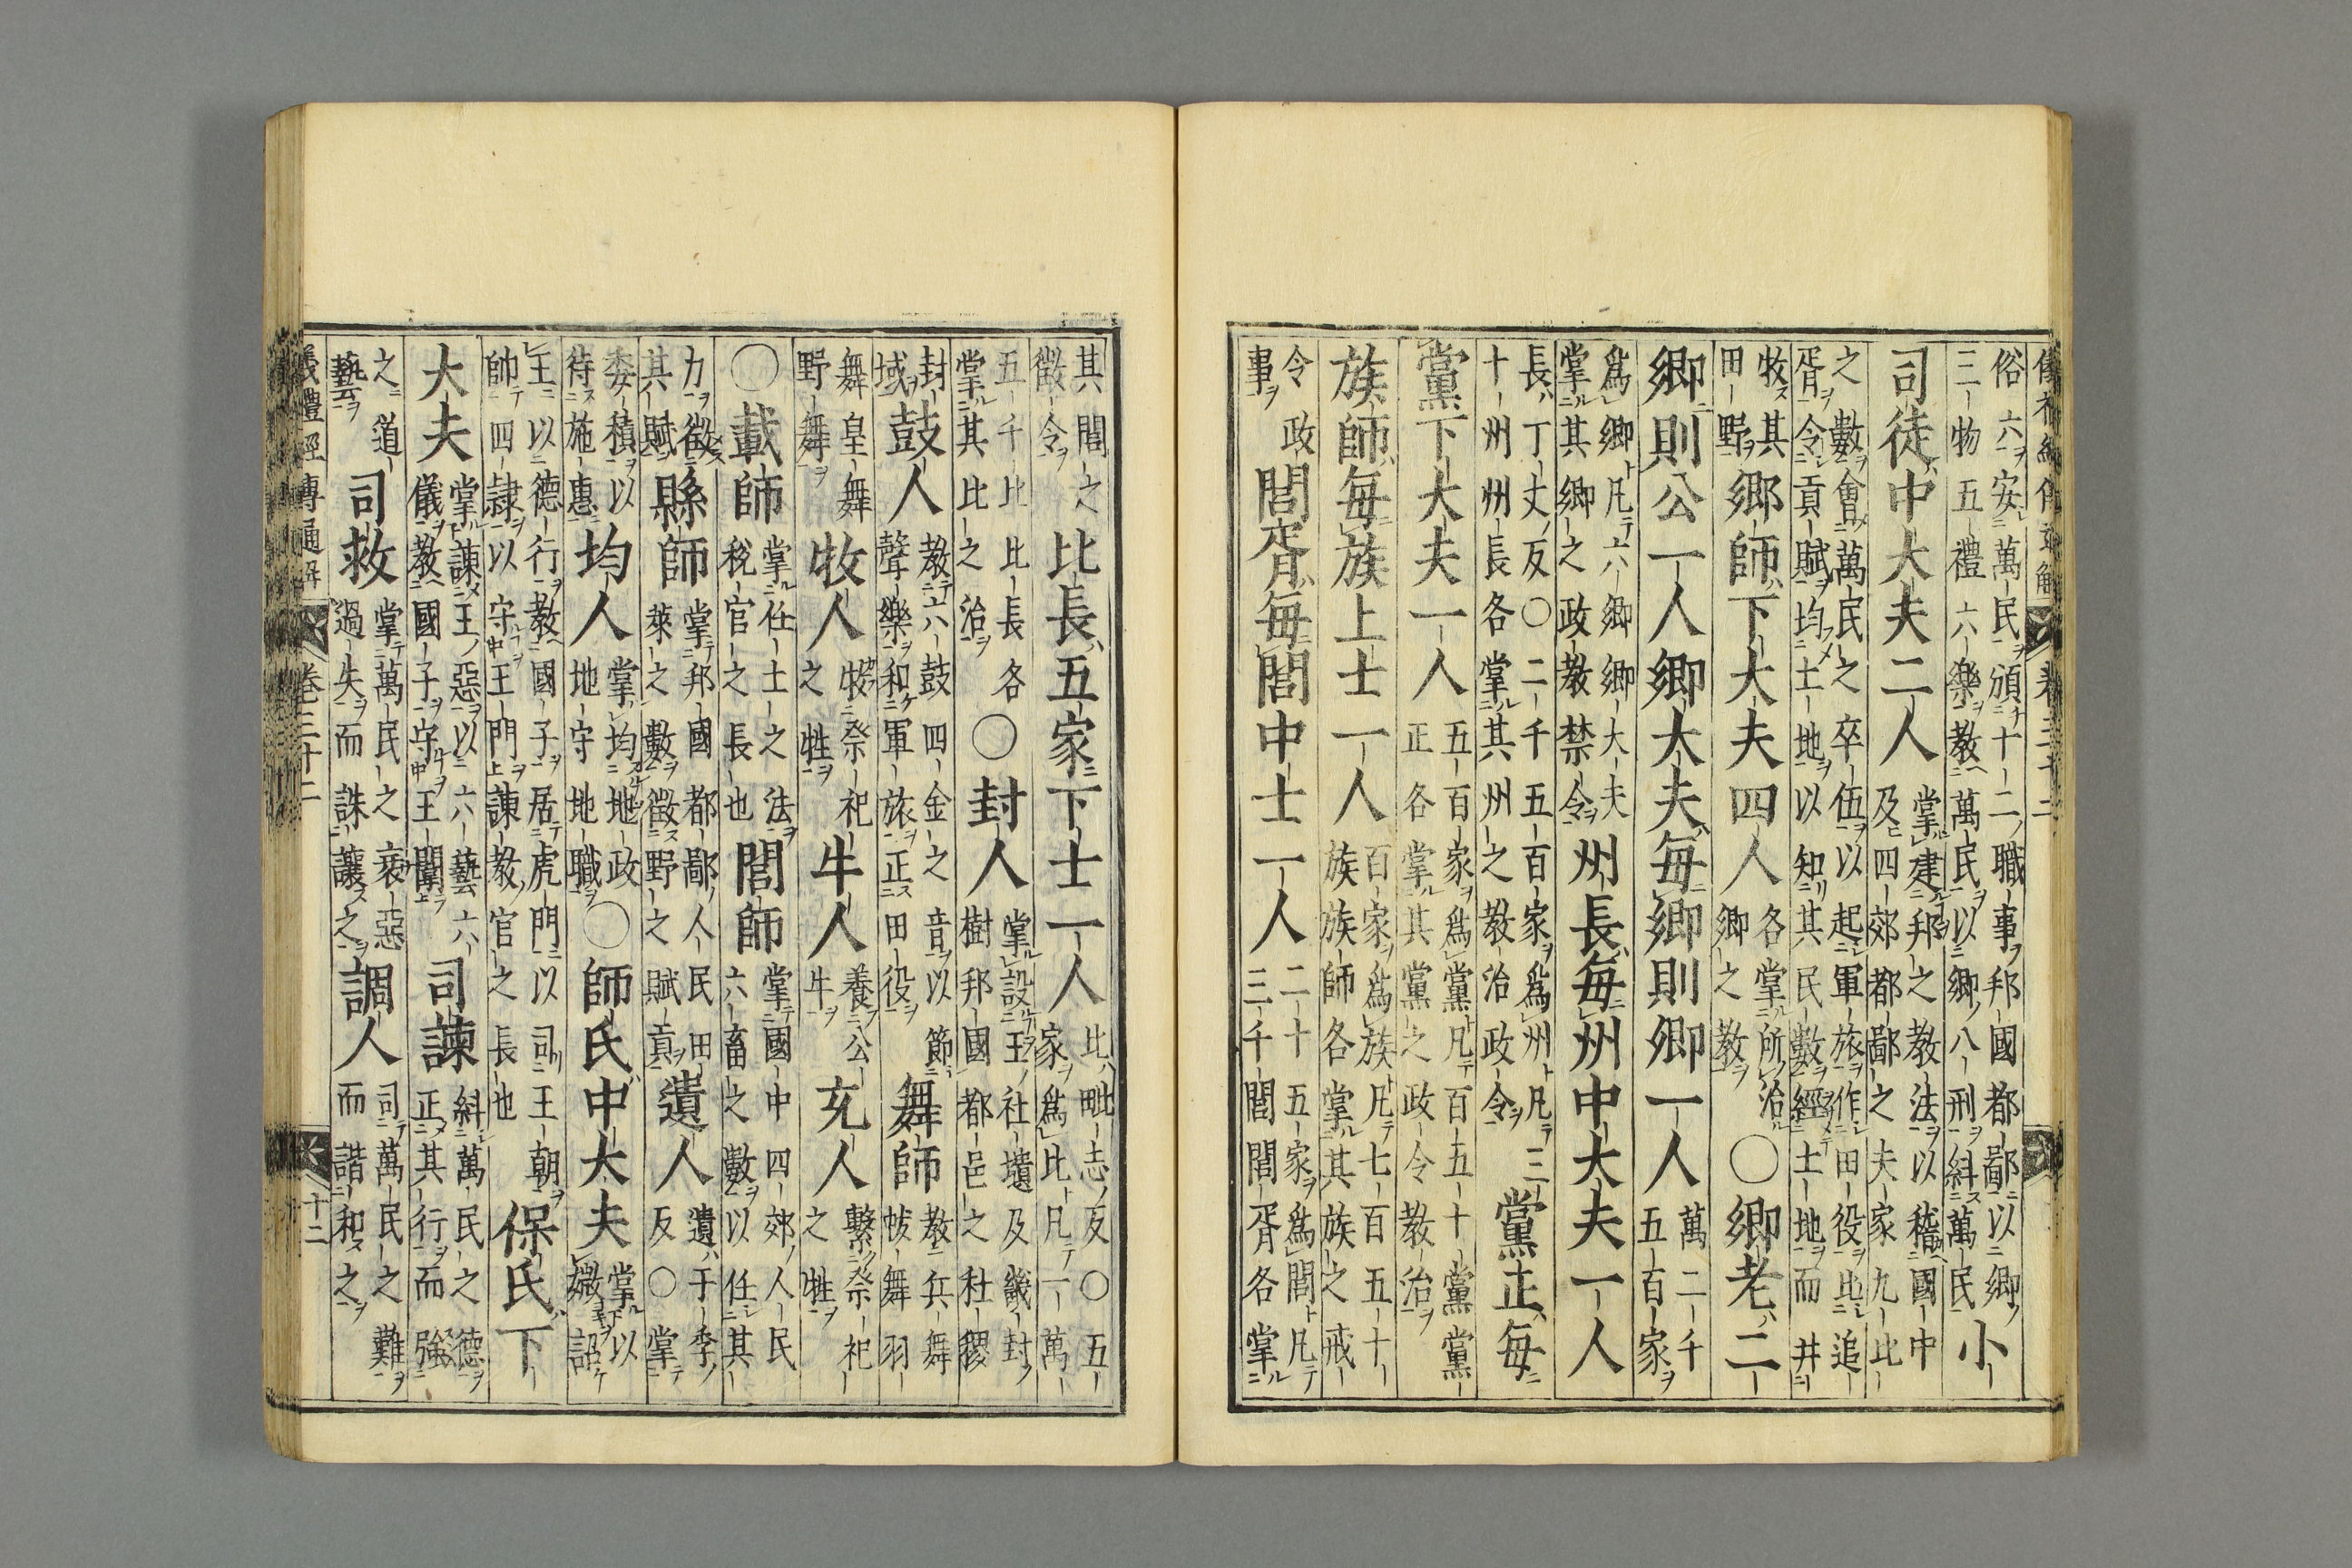 儀禮經傳通解 卷三十二
俗六安萬民頒十二職事邦國都鄙以鄉
三物五禮六樂教萬民以鄉八刑糾萬民
小
司徒中大夫二人
掌建邦之教法以稽國中
及四郊都鄙之夫家九比
之數會萬民之卒伍以起軍旅作田役比追
胥令貢賦均土地以知其民數經土地而井
牧其
田野
鄉師下大夫四人
各掌所治
鄉之教
〇鄉老二
鄉則公一人鄉大夫毎鄉則卿一人
萬二千
五百家
爲鄉凡六鄉鄉大夫
掌其鄉之政教禁令
州長毎州中大夫一人
長丁丈反〇二千五百家爲州凡三
十州州長各掌其州之教治政令
黨正毎
黨下大夫一人
五百家爲黨凡百五十黨黨
正各掌其黨之政令教治
族師毎族上士一人
百家爲族凡七百五十
族族師各掌其族之戒
令政
事
閭胥毎閭中士一人
二十五家爲閭凡
三千閭閭胥各掌
其閭之
徵令
比長五家下士一人
比毗志反〇五
家爲比凡一萬
五千比比長各
掌其比之治
〇封人
掌設王社壝及畿封
樹邦國都邑之社稷
封
域
鼓人
教六鼓四金之音以節
聲樂和軍旅正田役
舞師
教兵舞
帗舞羽
舞皇舞
野舞
牧人
牧祭祀
之牲
牛人
養公
牛
充人
繫祭祀
之牲
〇載師
掌任土之法
稅官之長也
閭師
掌國中四郊人民
六畜之數以任其
力徵
其賦
縣師
掌邦國都鄙人民田
萊之數徵野之賦貢
遺人
遺于季
反〇掌
委積以
待施惠
均人
掌均地政
地守地職
〇師氏中大夫
掌以
媺詔
王以德行教國子居虎門以司王朝
帥四隷以守王門諫教官之長也
保氏下
大夫
掌諫王惡以六藝六
儀教國子守王闈
司諫
糾萬民之德
正其行而強
之道
藝
司救
掌萬民之衺惡
過失而誅讓之
調人
司萬民之難
而諧和之
儀禮經傳通解 卷三十二 十二